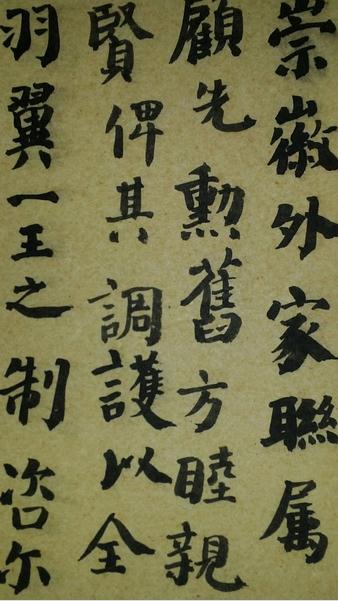 崇徽外家聯属
顧先勲舊方睦親
賢俾其調護以全
羽翼一王之制咨尔